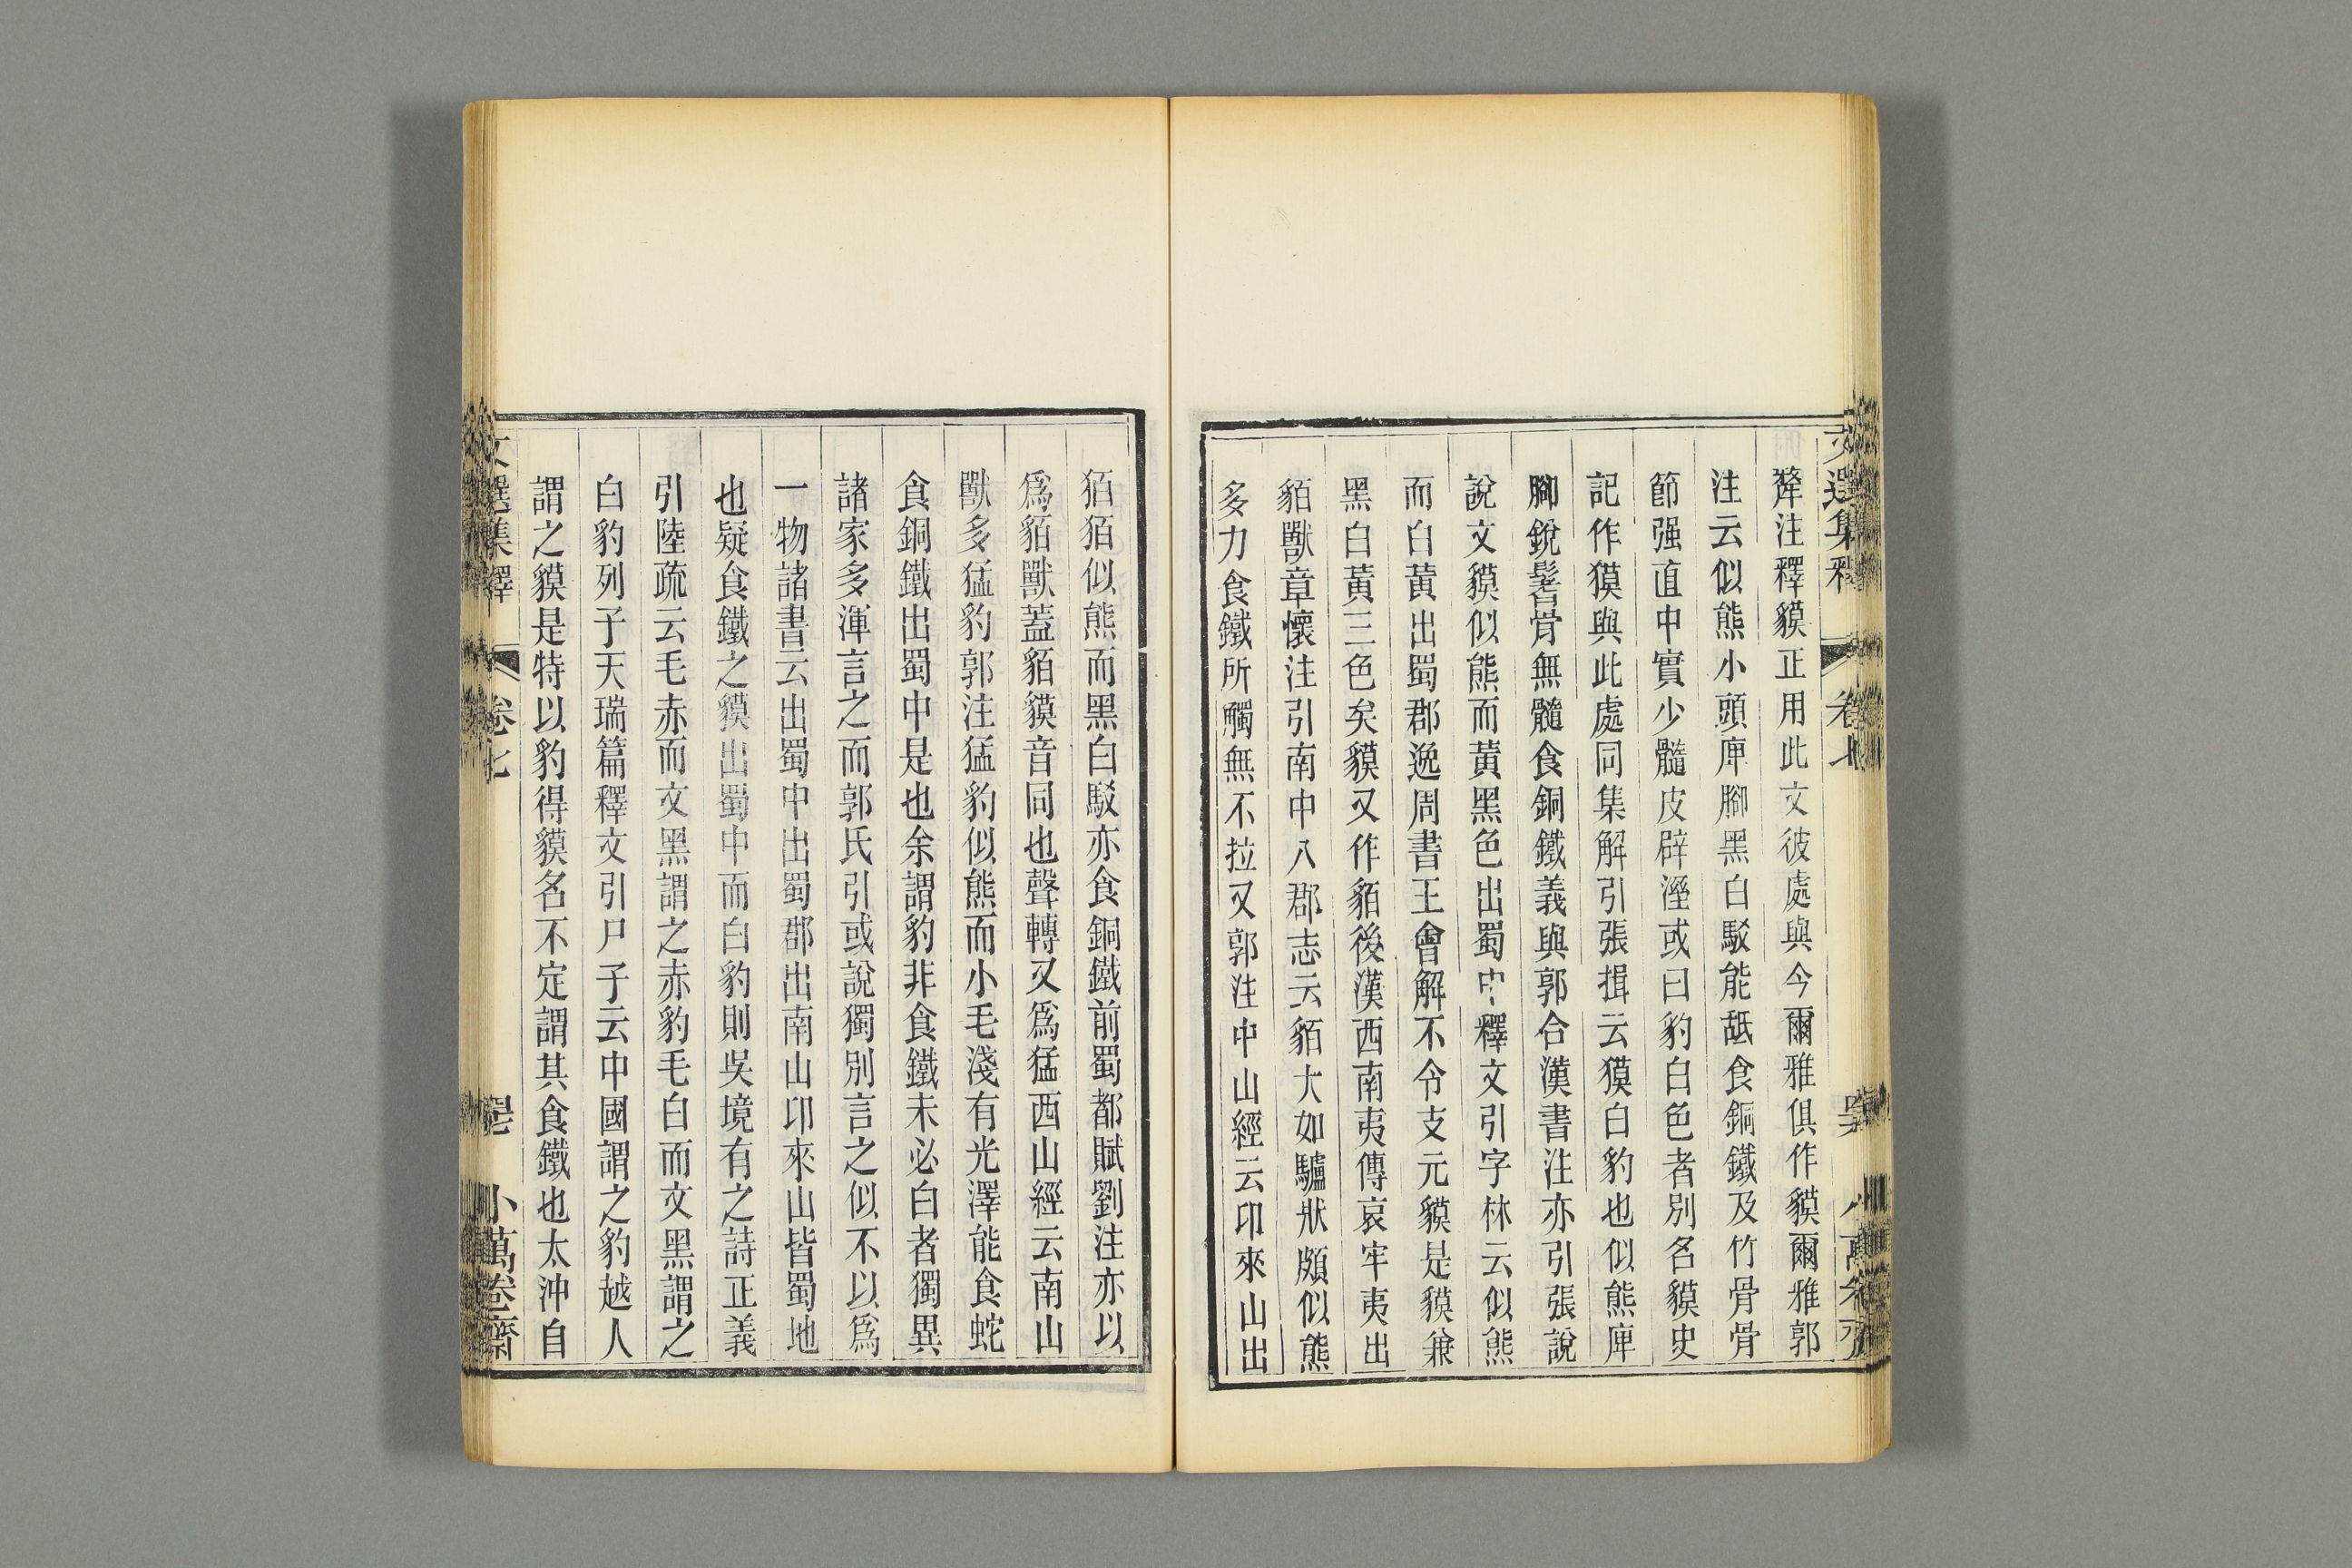 文選集釋 卷七
犛注釋貘正用此文彼處與今爾雅俱作貘爾雅郭
注云似熊小頭庳腳黑白駁能舐食銅鐵及竹骨骨
節强直中實少髓皮辟溼或曰豹白色者別名貘史
記作獏與此處同集解引張揖云獏白豹也似熊庳
腳銳鬐骨無髓食銅鐵義與郭合漢書注亦引張說
說文貘似熊而黃黑色出蜀中釋文引字林云似熊
而白黃出蜀郡逸周書王會解不令支元貘是貘兼
黑白黃三色矣貘又作貊後漢西南夷傳哀牢夷出
貊獸章懷注引南中八郡志云貊大如驢狀頗似熊
多力食鐵所觸無不拉又郭注中山經云邛來山出
狛狛似熊而黑白駁亦食銅鐵前蜀都賦劉注亦以
爲貊獸蓋貊貘音同也聲轉又爲猛西山經云南山
獸多猛豹郭注猛豹似熊而小毛淺有光澤能食蛇
食銅鐵出蜀中是也余謂豹非食鐵未必白者獨異
諸家多渾言之而郭氏引或說獨別言之似不以爲
一物諸書云出蜀中出蜀郡出南山邛來山皆蜀地
也疑食鐵之貘出蜀中而白豹則吳境有之詩正義
引陸疏云毛赤而文黑謂之赤豹毛白而文黑謂之
白豹列子天瑞篇釋文引尸子云中國謂之豹越人
謂之貘是特以豹得貘名不定謂其食鐵也太沖自
文選集釋 卷七 小萬卷齋